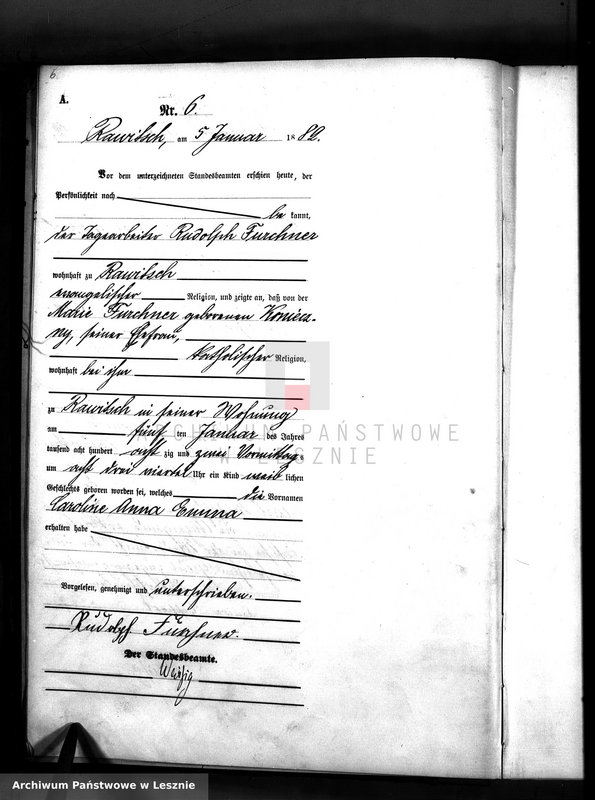 6.
A.
Nr. 6.
Rawitsch, am 5 Januar 1882.
Vor dem unterzeichneten Standesbeamten erschien heute, der
Persönlichkeit nach
be kannt,
der Tagearbeiter Rudolph Furchner
wohnhaft zu Rawitsch
evangelischer Religion, und zeigte an, daß von der
Marie Furchner geborenen Koniecz-
ny, seiner Ehefrau,
katholischer Religion,
wohnhaft bei ihm
zu Rawitsch in seiner Wohnung
am fünf ten Januar des Jahres
tausend acht hundert acht zig und zwei Vormittags
um acht drei viertel Uhr ein Kind weib lichen
Geschlechts geboren worden sei, welches die Vornamen
Caroline Anna Emma
erhalten habe
Vorgelesen, genehmigt und unterschrieben.
Rudolph Furchner.
Der Standesbeamte.
ARCHIWUM PAŃSTWOWE
W LESZNIE
Archiwum Państwowe w Lesznie